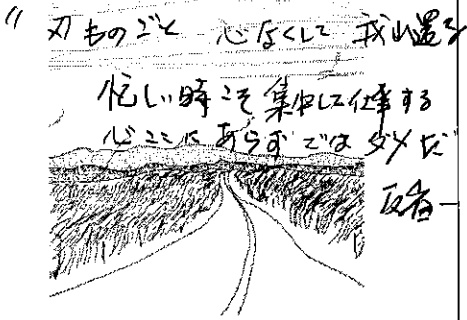 〃 刃ものごと 心なくして 我山遇る
忙しい時こそ集中して仕事する
心ここにあらずではダメだ
反省